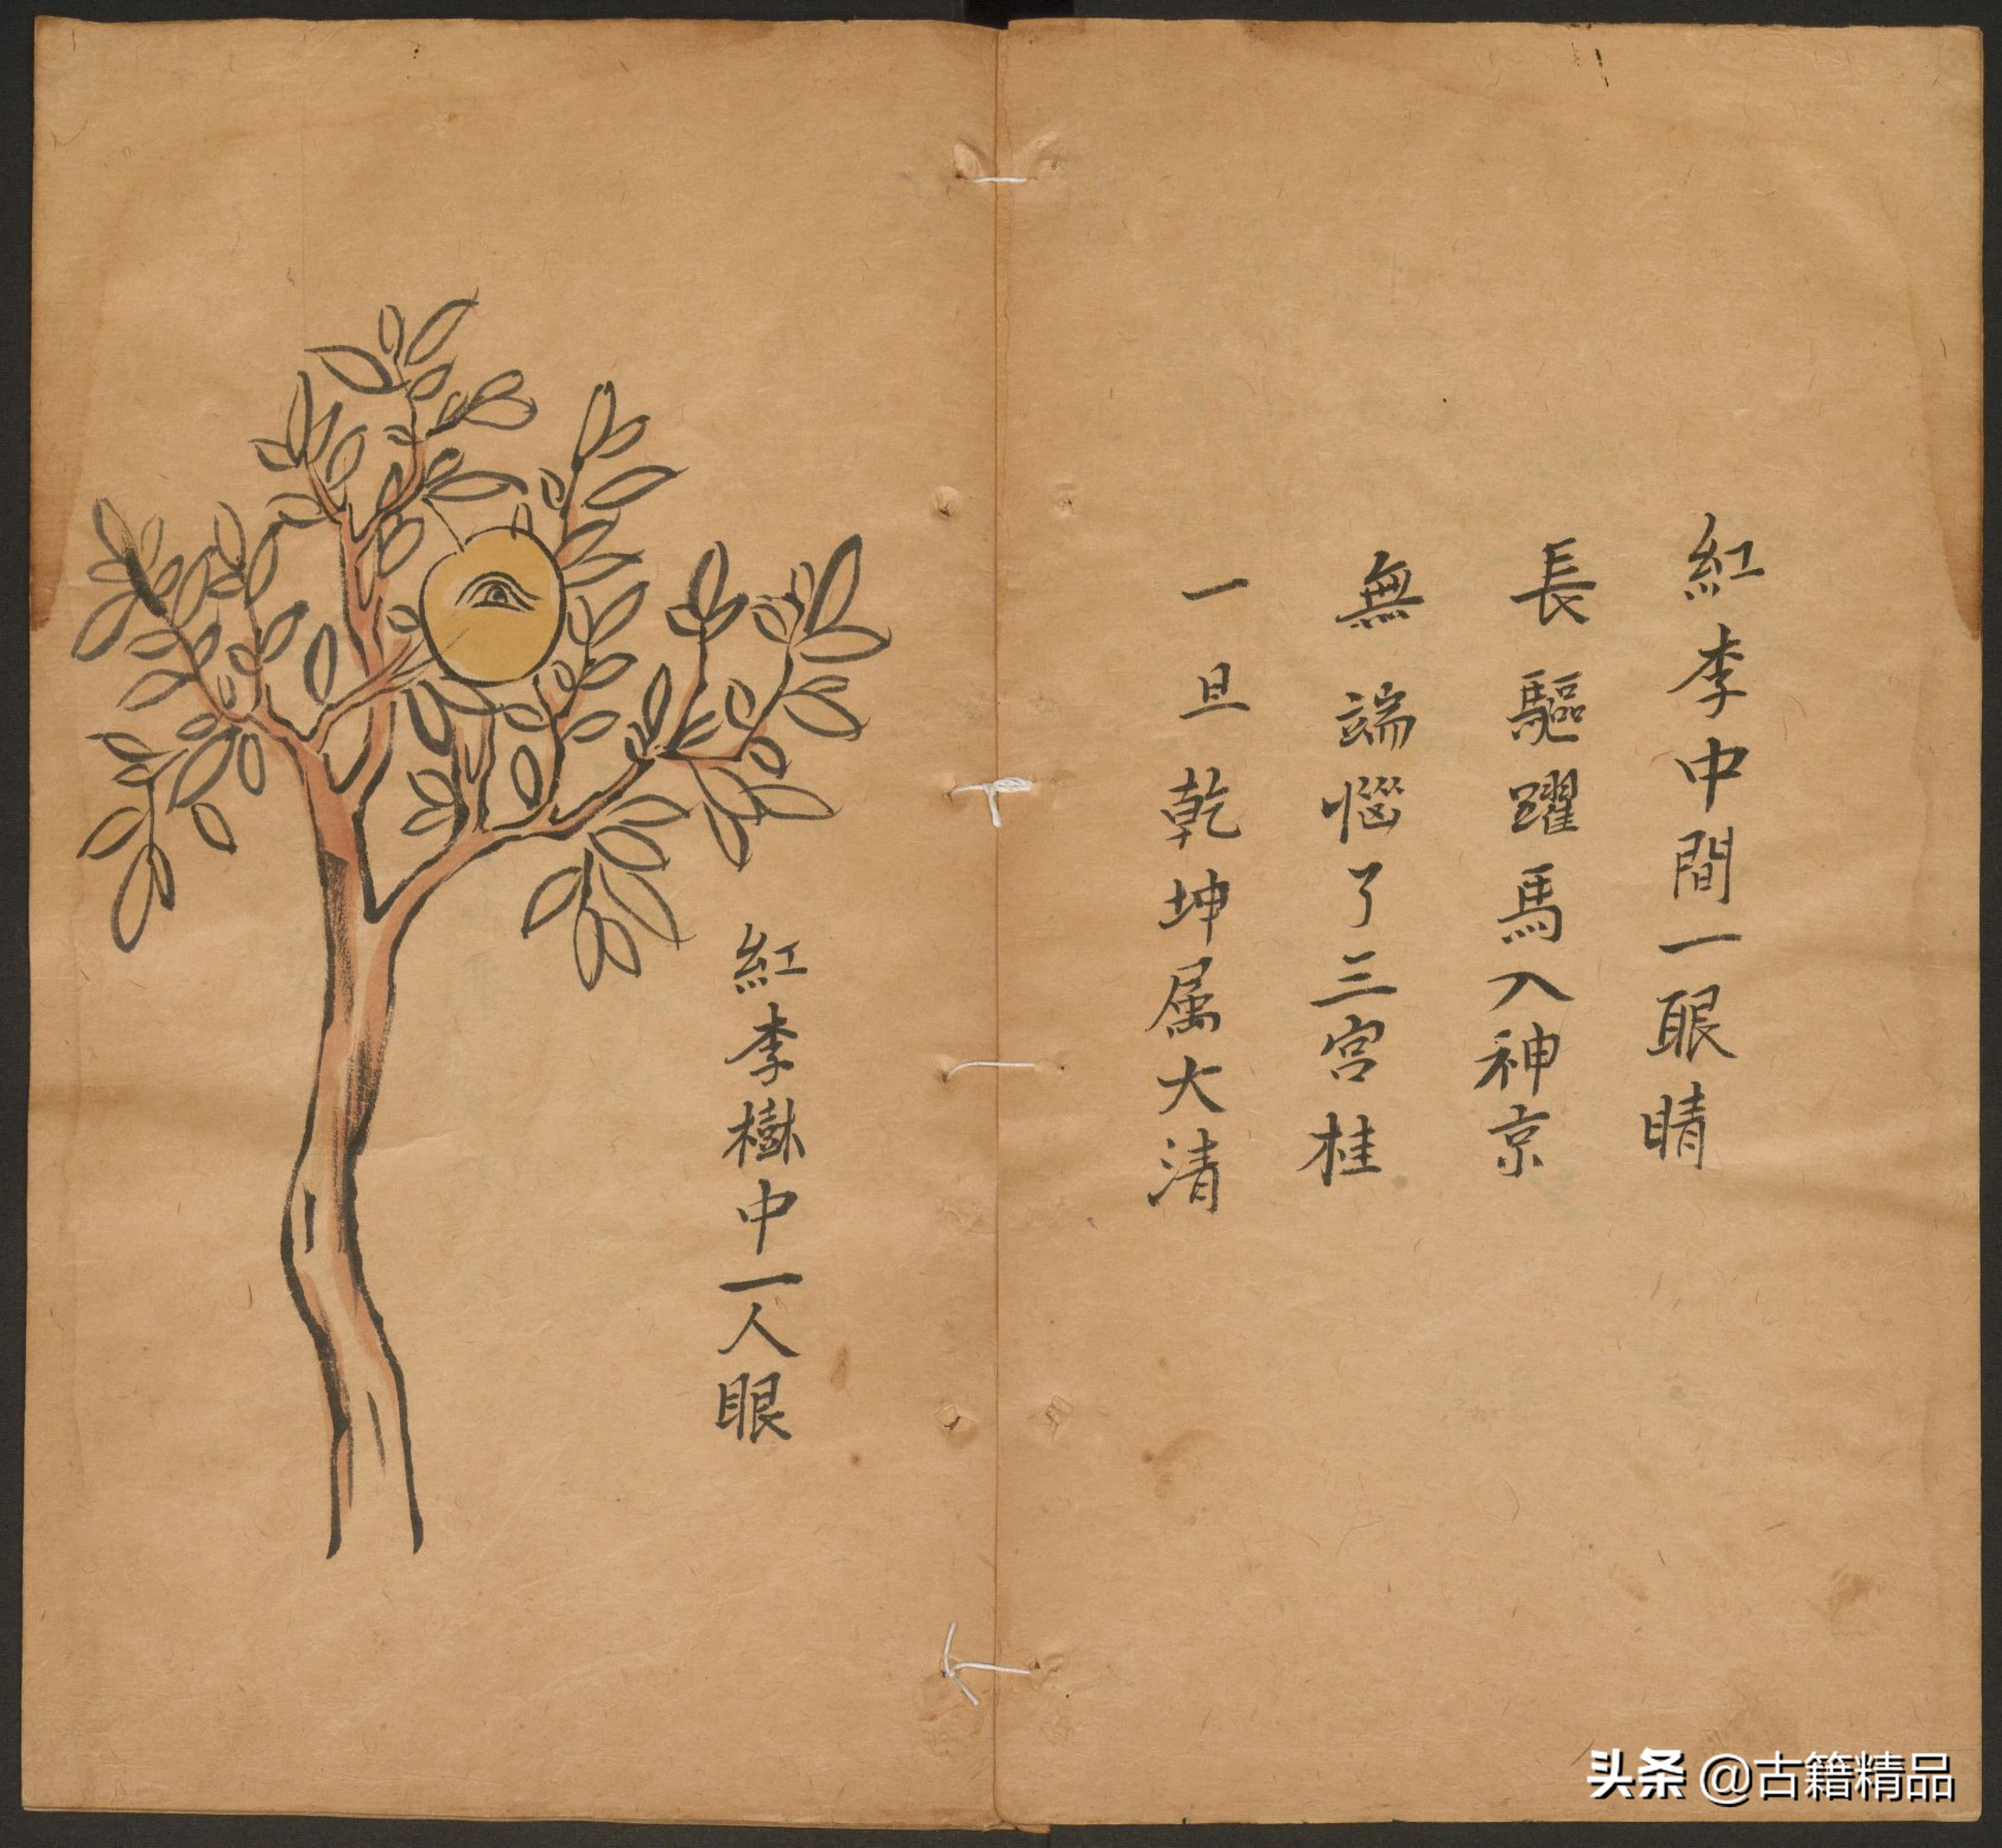 紅李中間一眼睛
長驅躍馬入神京
無端惱了三宮桂
一旦乾坤属大清
紅李樹中一人眼
头条 @古籍精品